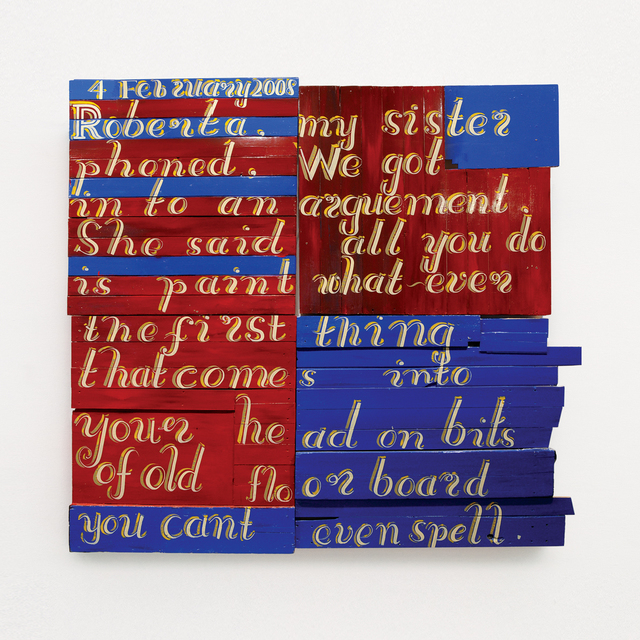 4 February 2008
Roberta, my sister
phoned. We got
in to an arguement.
She said all you do
is paint what-ever
the first thing
that comes into
your head on bits
of old floor board
you cant even spell.